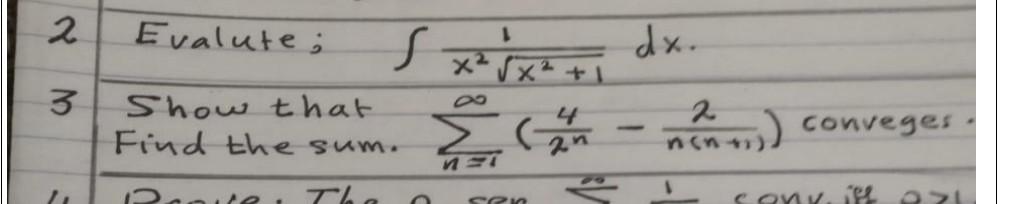 2 Evalute; ∫ 1/(x² √(x² + 1)) dx.
3 Show that ∞∑n=1 (4/2ⁿ - 2/(n(n+1))) conveges.
Find the sum.
∞∑ 1/ conv. iff